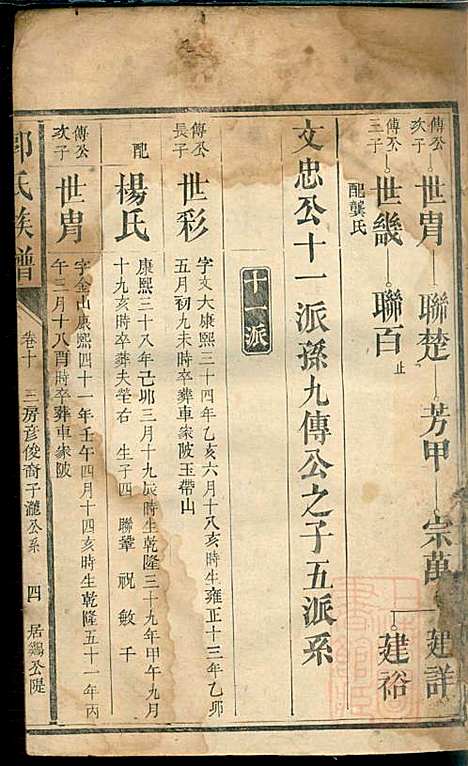 傳公次子 世胄 聯楚 芳甲 宗萬 建詳
建裕
傳公三子 世畿 聯百 止
配龔氏
文忠公十一派孫九傳公之子五派系
十一派
傳公長子 世彩 字文大康熙三十四年乙亥六月十八亥時生雍正十三年乙卯
五月初九未時卒葬車家陂玉帶山
配 楊氏 康熙三十八年己卯三月十九辰時生乾隆三十九年甲午九月
十九亥時卒葬夫塋右 生子四 聯 祝 敏 千
傳公次子 世胄 字金山康熙四十一年壬午四月十四亥時生乾隆五十一年丙
午三月十八酉時卒葬車家陂
郭氏族譜 卷十 三房彥俊裔子瀧公系 四 居鷄公隄